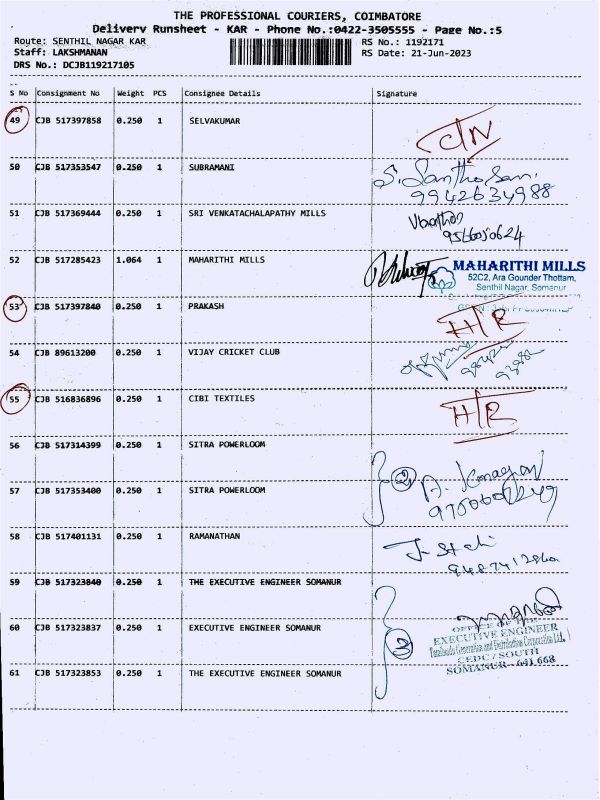 THE PROFESSIONAL COURIERS, COIMBATORE
Delivery Runsheet - KAR - Phone No.:0422-3505555 - Page No.:5
Route: SENTHIL NAGAR KAR RS No.: 1192171
Staff: LAKSHMANAN RS Date: 21-Jun-2023
DRS No.: DCJB119217105
S No Consignment No Weight PCS Consignee Details Signature
49 CJB 517397858 0.250 1 SELVAKUMAR
50 CJB 517353547 0.250 1 SUBRAMANI S. Santhosan.
9942634988
51 CJB 517369444 0.250 1 SRI VENKATACHALAPATHY MILLS
9566050624
52 CJB 517285423 1.064 1 MAHARITHI MILLS MAHARITHI MILLS
52C2, Ara Gounder Thottam,
Senthil Nagar, Somanur
53 CJB 517397840 0.250 1 PRAKASH H/R
54 CJB 89613200 0.250 1 VIJAY CRICKET CLUB
55 CJB 516836896 0.250 1 CIBI TEXTILES H/R
56 CJB 517314399 0.250 1 SITRA POWERLOOM 2
57 CJB 517353400 0.250 1 SITRA POWERLOOM
58 CJB 517401131 0.250 1 RAMANATHAN
59 CJB 517323840 0.250 1 THE EXECUTIVE ENGINEER SOMANUR
60 CJB 517323837 0.250 1 EXECUTIVE ENGINEER SOMANUR 3
OFFICE OF THE
EXECUTIVE ENGINEER
Tamilnadu Generation and Distribution Corporation Ltd.,
CEDC / SOUTH
SOMANUR - 641 668
61 CJB 517323853 0.250 1 THE EXECUTIVE ENGINEER SOMANUR